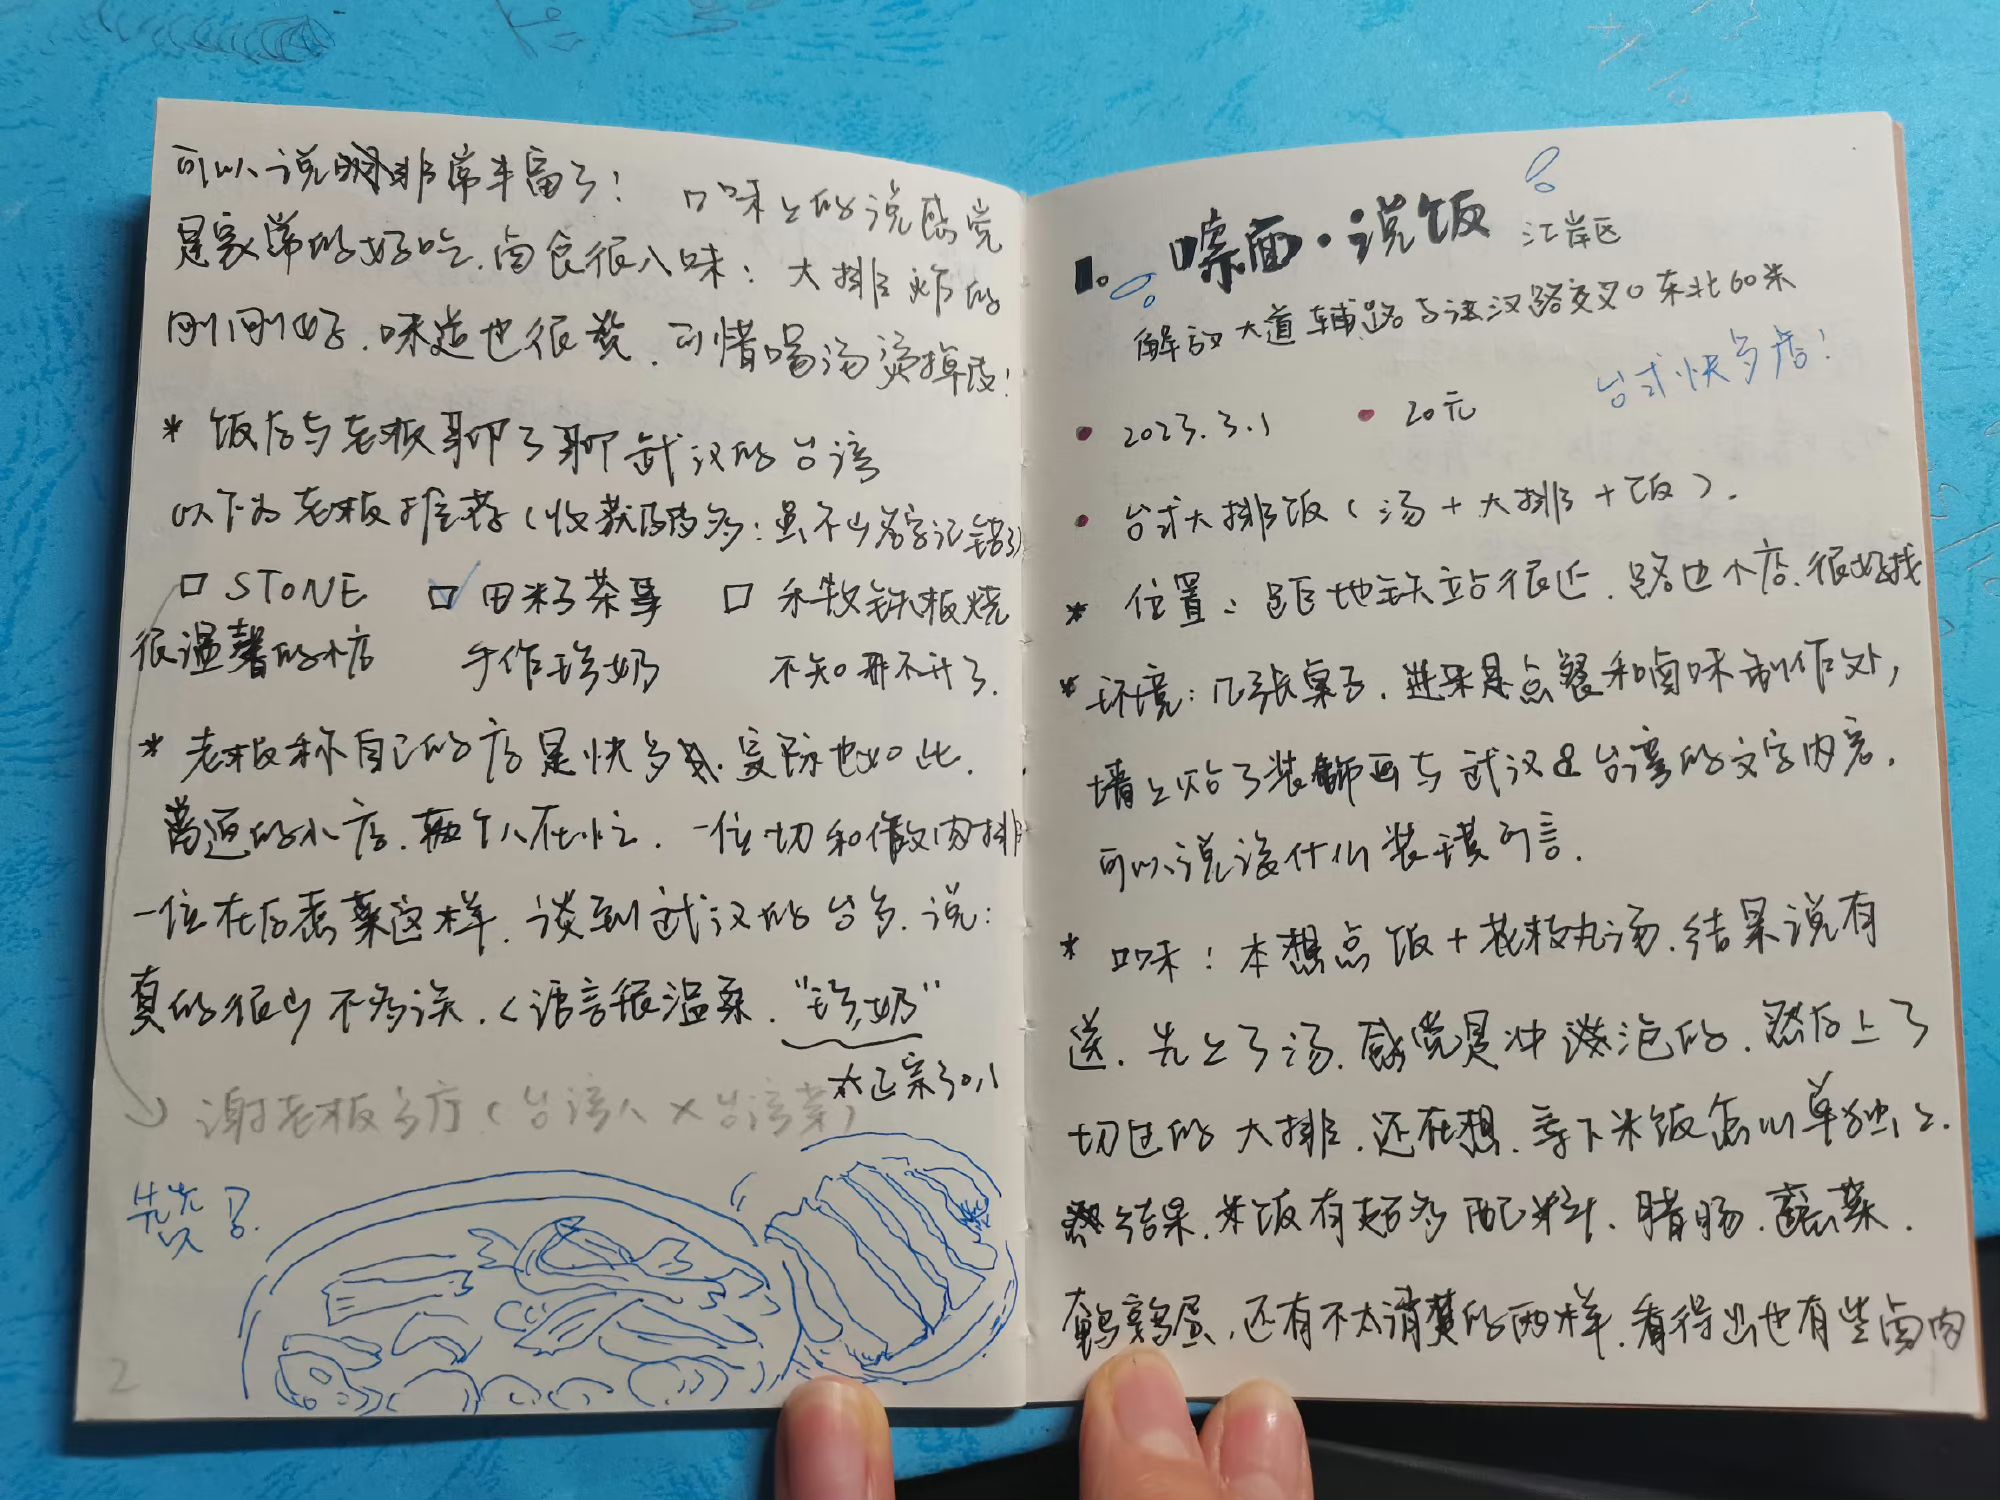 可以说非常丰富了！ 口味上的说感觉
是家常的好吃，卤食很入味；大排炸的
刚刚好，味道也很赞，可惜喝汤烫掉皮！
* 饭后与老板聊了聊武汉的台湾
以下为老板推荐（收获颇多：虽不少名字记错了）
□ STONE □ 田籽茶事 □ 禾牧铁板烧
很温馨的小店 手作珍奶 不知开不开了.
* 老板称自己的店是快多，实际也如此.
普通的小店，两个人在忙，一位切和做肉排
一位在后煮菜这样，谈到武汉的台多，说：
真的很少不多误，（语言很温柔，"珍奶"
太正宗了0.1
→ 谢老板多店（台湾人×台湾菜）
赞
2
1. 嗦面·说饭 江岸区
解放大道辅路与汉路交叉口东北60米
• 2023.3.1 • 20元 台式快多店！
• 台式大排饭（汤+大排+饭）.
* 位置：距地铁站很近，路边小店，很好找
* 环境：几张桌子，进来是点餐和卤味制作处，
墙上贴了装饰画与武汉&台湾的文字内容，
可以说没什么装璜可言.
* 口味：本想点饭+花枝丸汤，结果说有
送，先上了汤，感觉是冲泡的，然后上了
切过的大排，还在想，剩下米饭怎么单独上.
结果，米饭有超多配料，腊肠，蔬菜，
鹌鹑蛋，还有不太清楚的两样，看得出也有些卤肉
1